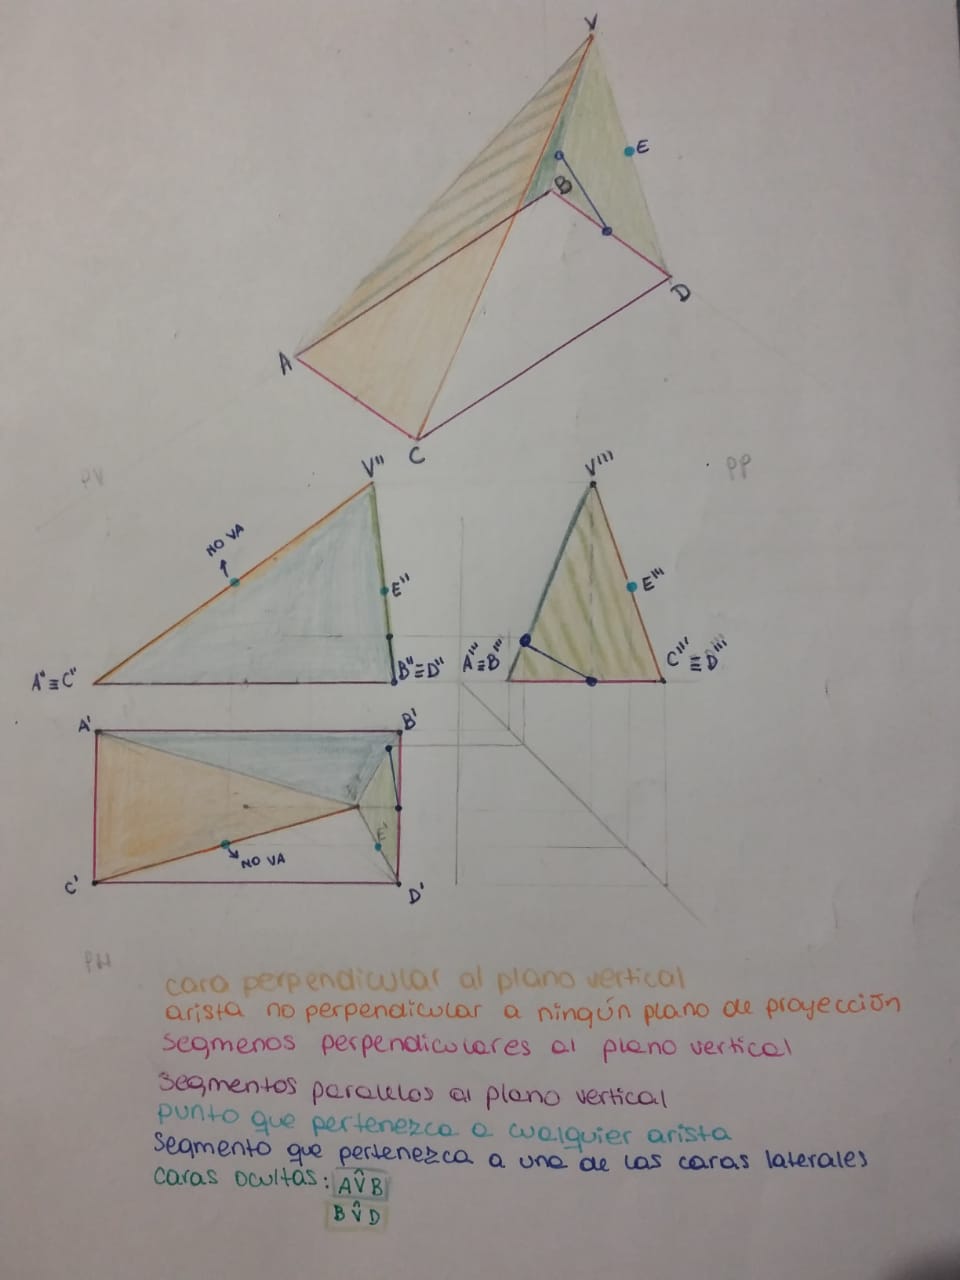 V
E
B
D
A
C
PV
V"
V'''
PP
NO VA
E"
E'''
A"≡C"
B"≡D"
A'''≡B'''
C'''≡D'''
A'
B'
E'
NO VA
C'
D'
PH
cara perpendicular al plano vertical
arista no perpendicular a ningún plano de proyección
segmenos perpendiculares al plano vertical
segmentos paralelos al plano vertical
punto que pertenezca a cualquier arista
segmento que pertenezca a una de las caras laterales
caras ocultas: AV̂B
BV̂D